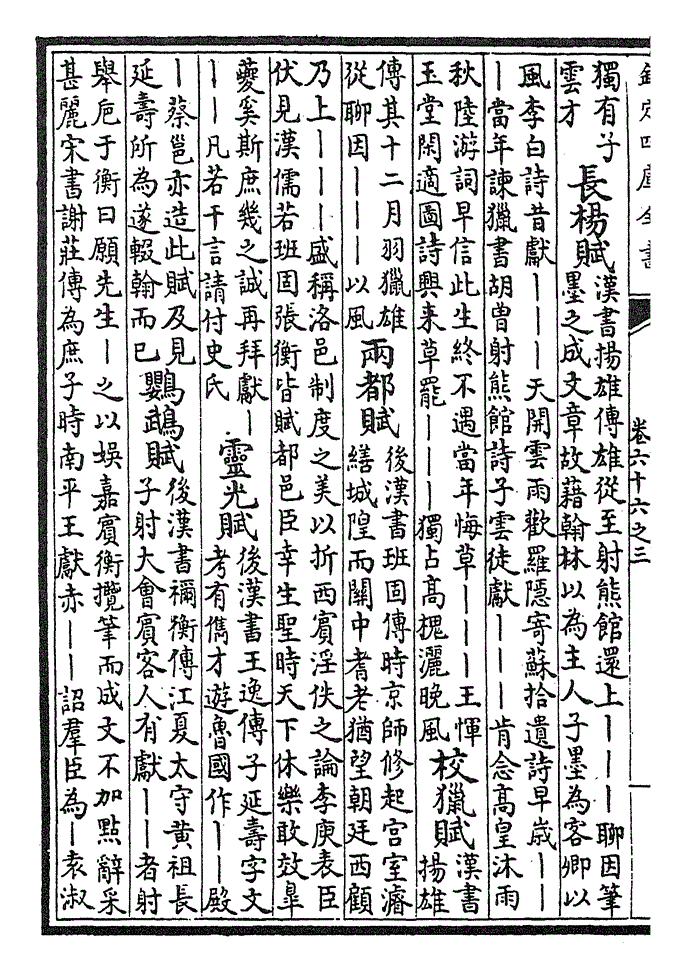 欽定四庫全書
卷六十六之三
獨有子
雲才
長楊賦
漢書揚雄傳雄從至射熊館還上｜｜｜聊因筆
墨之成文章故藉翰林以為主人子墨為客卿以
風李白詩昔獻｜｜｜天開雲雨歡羅隱寄蘇拾遺詩早歲｜｜
｜當年諫獵書胡曽射熊館詩子雲徒獻｜｜｜肯念高皇沐雨
秋陸游詞早信此生終不遇當年悔草｜｜｜王惲
玉堂閑適圖詩興来草罷｜｜｜獨占高槐灑晚風
校獵賦
漢書
揚雄
傳其十二月羽獵雄
從聊因｜｜｜以風
兩都賦
後漢書班固傳時京師修起宫室濬
繕城隍而關中耆老猶望朝廷西顧
乃上｜｜｜盛稱洛邑制度之美以折西賓淫佚之論李庾表臣
伏見漢儒若班固張衡皆賦都邑臣幸生聖時天下休樂敢效臯
夔奚斯庶幾之誠再拜獻｜
｜｜凡若干言請付史氏
靈光賦
後漢書王逸傳子延壽字文
考有儁才遊魯國作｜｜殿
｜蔡邕亦造此賦及見
延壽所為遂輟翰而已
鸚䳇賦
後漢書禰衡傳江夏太守黄祖長
子射大會賓客人有獻｜｜者射
舉巵于衡曰願先生｜之以娛嘉賓衡攬筆而成文不加點辭采
甚麗宋書謝莊傳為庶子時南平王獻赤｜｜詔羣臣為｜袁淑